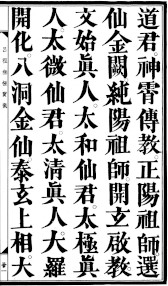 道君神霄傳教正陽祖師選
仙金闕純陽祖師開玄啟教
文始眞人太和仙君太極眞
人太微仙君太清眞人大羅
開化八洞金仙泰玄上相大